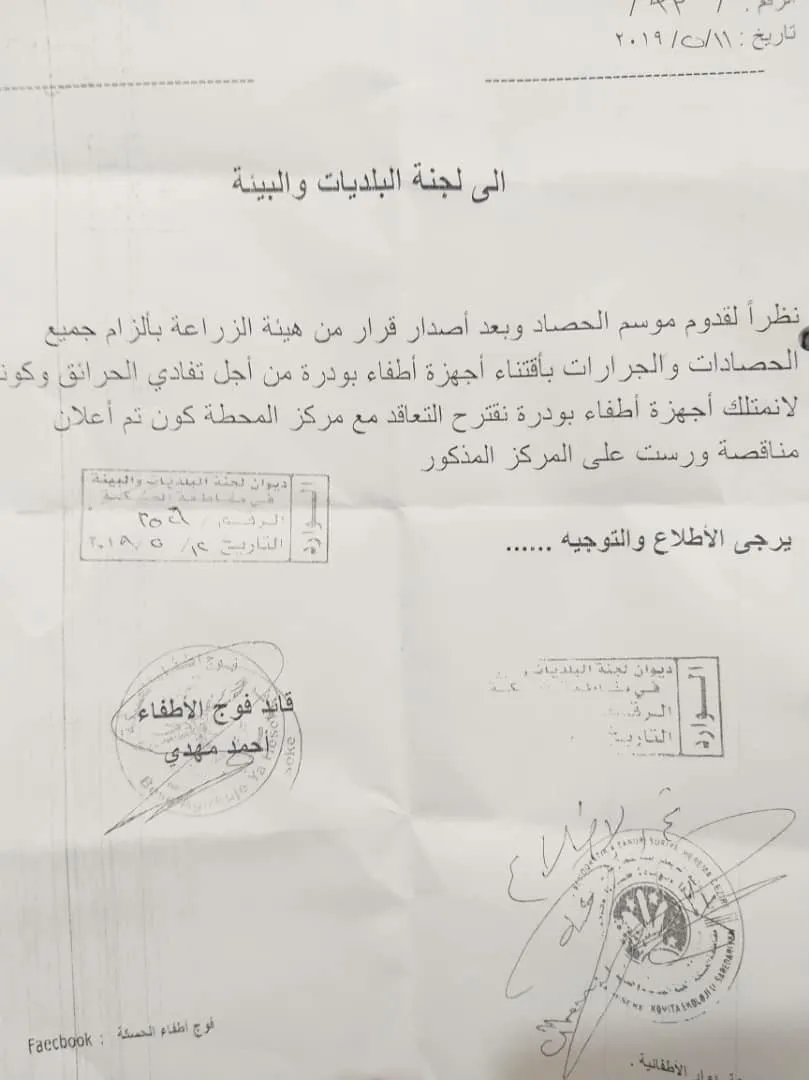 الرقم :
تاريخ : ١١/٥/٢٠١٩
الى لجنة البلديات والبيئة
نظراً لقدوم موسم الحصاد وبعد أصدار قرار من هيئة الزراعة بألزام جميع
الحصادات والجرارات بأقتناء أجهزة أطفاء بودرة من أجل تفادي الحرائق وكون
لانمتلك أجهزة أطفاء بودرة نقترح التعاقد مع مركز المحطة كون تم أعلان
مناقصة ورست على المركز المذكور
يرجى الأطلاع والتوجيه ......
الواردة
ديوان لجنة البلديات والبيئة
في مقاطعة الحسكة
الرقم /
التاريخ ١٢/ ٥ /٢٠١٩
قائد فوج الأطفاء
أحمد مهدي
الواردة
ديوان لجنة البلديات
في مقاطعة
الرقم
التاريخ
تم الاطلاع
Faecbook : فوج اطفاء الحسكة
الأطفائية .